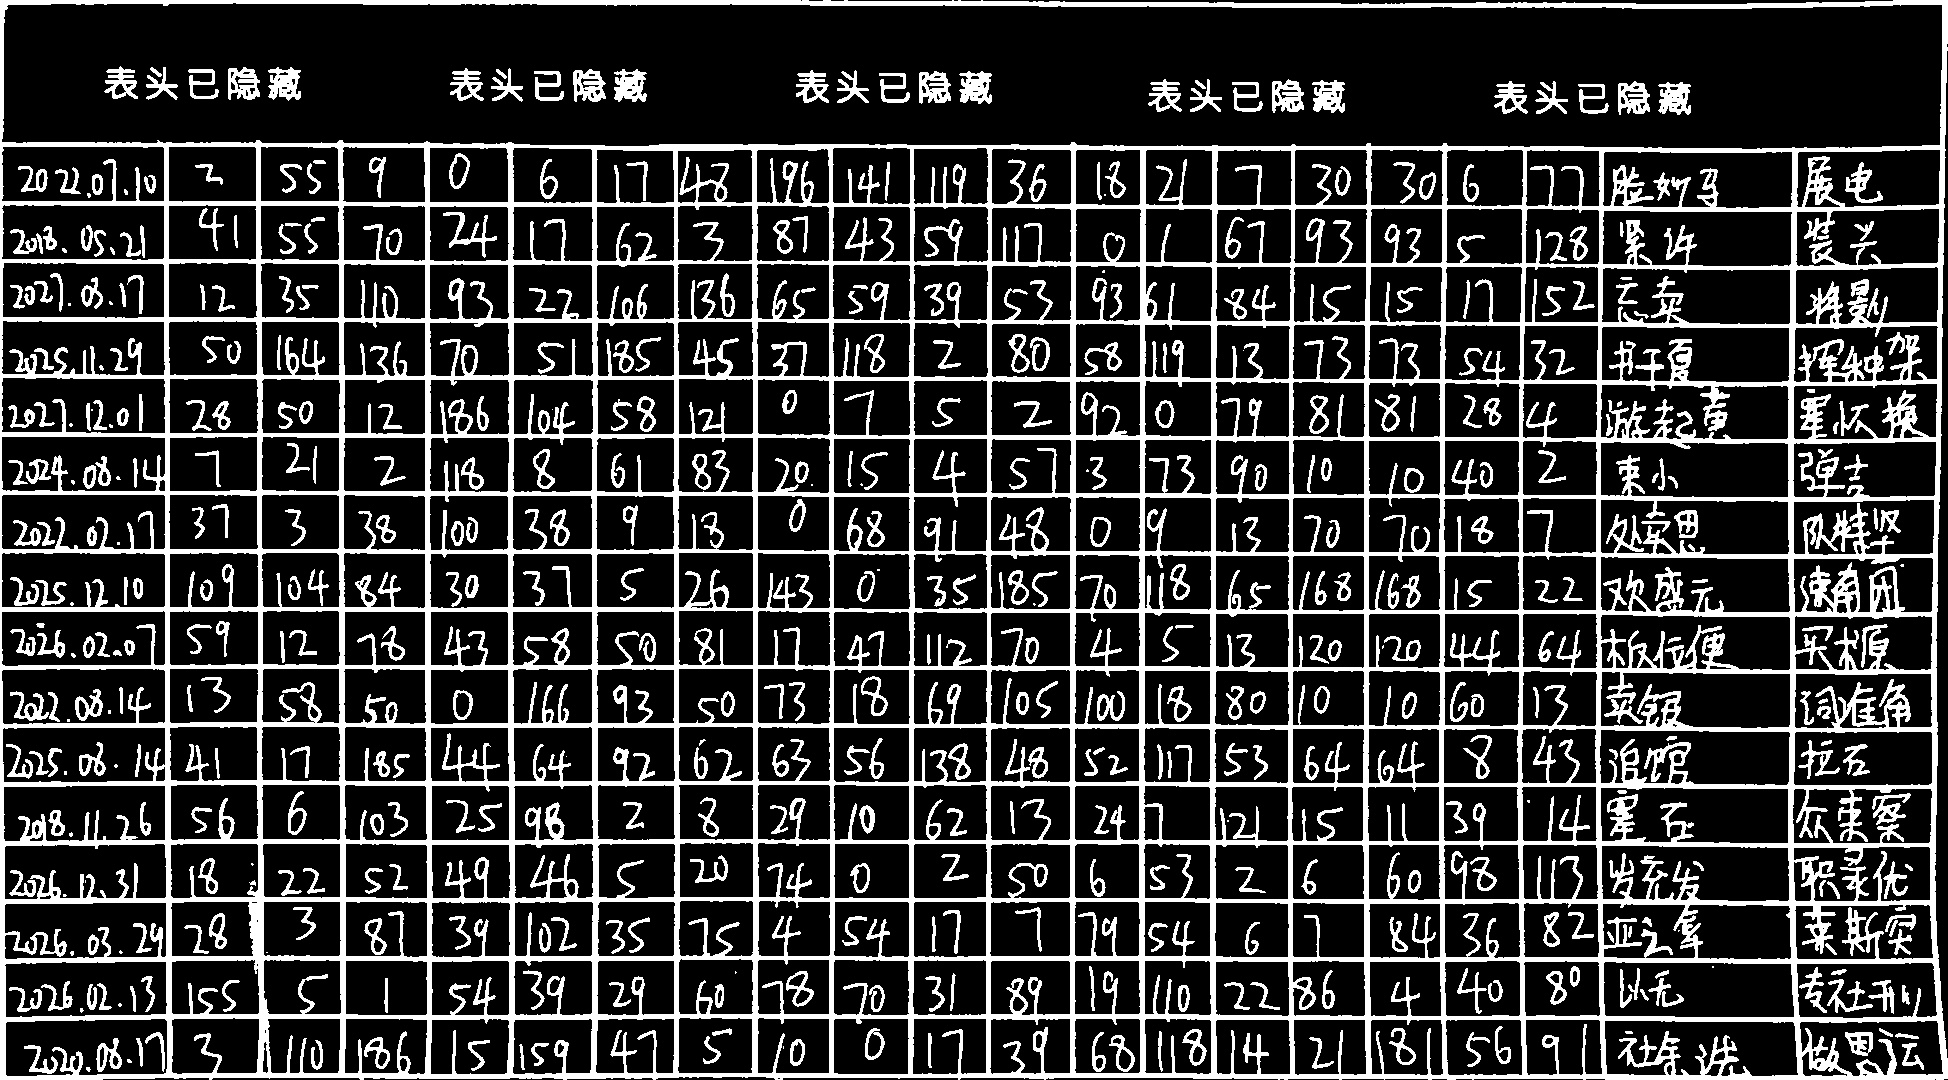 表头已隐藏 表头已隐藏 表头已隐藏 表头已隐藏 表头已隐藏
2022.07.10 2 55 9 0 6 17 48 196 141 119 36 18 21 7 30 30 6 77 脸妙号 展电
2018.05.21 41 55 70 24 17 62 3 87 43 59 117 0 1 67 93 93 5 128 紧许 装兴
2027.08.17 12 35 110 93 22 106 136 65 59 39 53 93 61 84 15 15 17 152 忘卖 将影
2025.11.29 50 164 136 70 51 185 45 37 118 2 80 58 119 13 73 73 54 32 书干夏 挥种架
2027.12.01 28 50 12 186 104 58 121 0 7 5 2 92 0 79 81 81 28 4 游起黄 星怀换
2024.08.14 7 21 2 118 8 61 83 20 15 4 57 3 73 90 10 10 40 2 束小 弹吉
2022.02.17 37 3 38 100 38 9 18 0 68 91 48 0 9 13 70 70 18 7 处卖思 队特坚
2025.12.10 109 104 84 30 37 5 26 143 0 35 185 70 118 65 168 168 15 22 欢盛元 速角团
2026.02.07 59 12 78 43 58 50 81 17 47 112 70 4 5 13 120 120 44 64 板位便 买木原
2022.08.14 13 58 50 0 166 93 50 73 18 69 105 100 18 80 10 10 60 13 卖银 词准角
2025.08.14 41 17 185 44 64 92 62 63 56 138 48 52 117 53 64 64 8 43 追馆 拉石
2018.11.26 56 6 103 25 98 2 8 29 10 62 13 24 7 121 15 11 39 14 石 众束察
2026.12.31 18 22 52 49 46 5 20 74 0 2 50 6 53 2 6 60 98 113 发充发 职录优
2026.03.29 28 3 87 39 102 35 75 4 54 17 7 79 54 6 7 84 36 82 亚云拿 卖斯突
2026.02.13 155 5 1 54 39 29 60 78 70 31 89 19 110 22 86 4 40 80 以无 专社刑
2020.08.17 3 110 186 15 159 47 5 10 0 17 39 68 118 14 21 181 56 91 社集洗 做思运